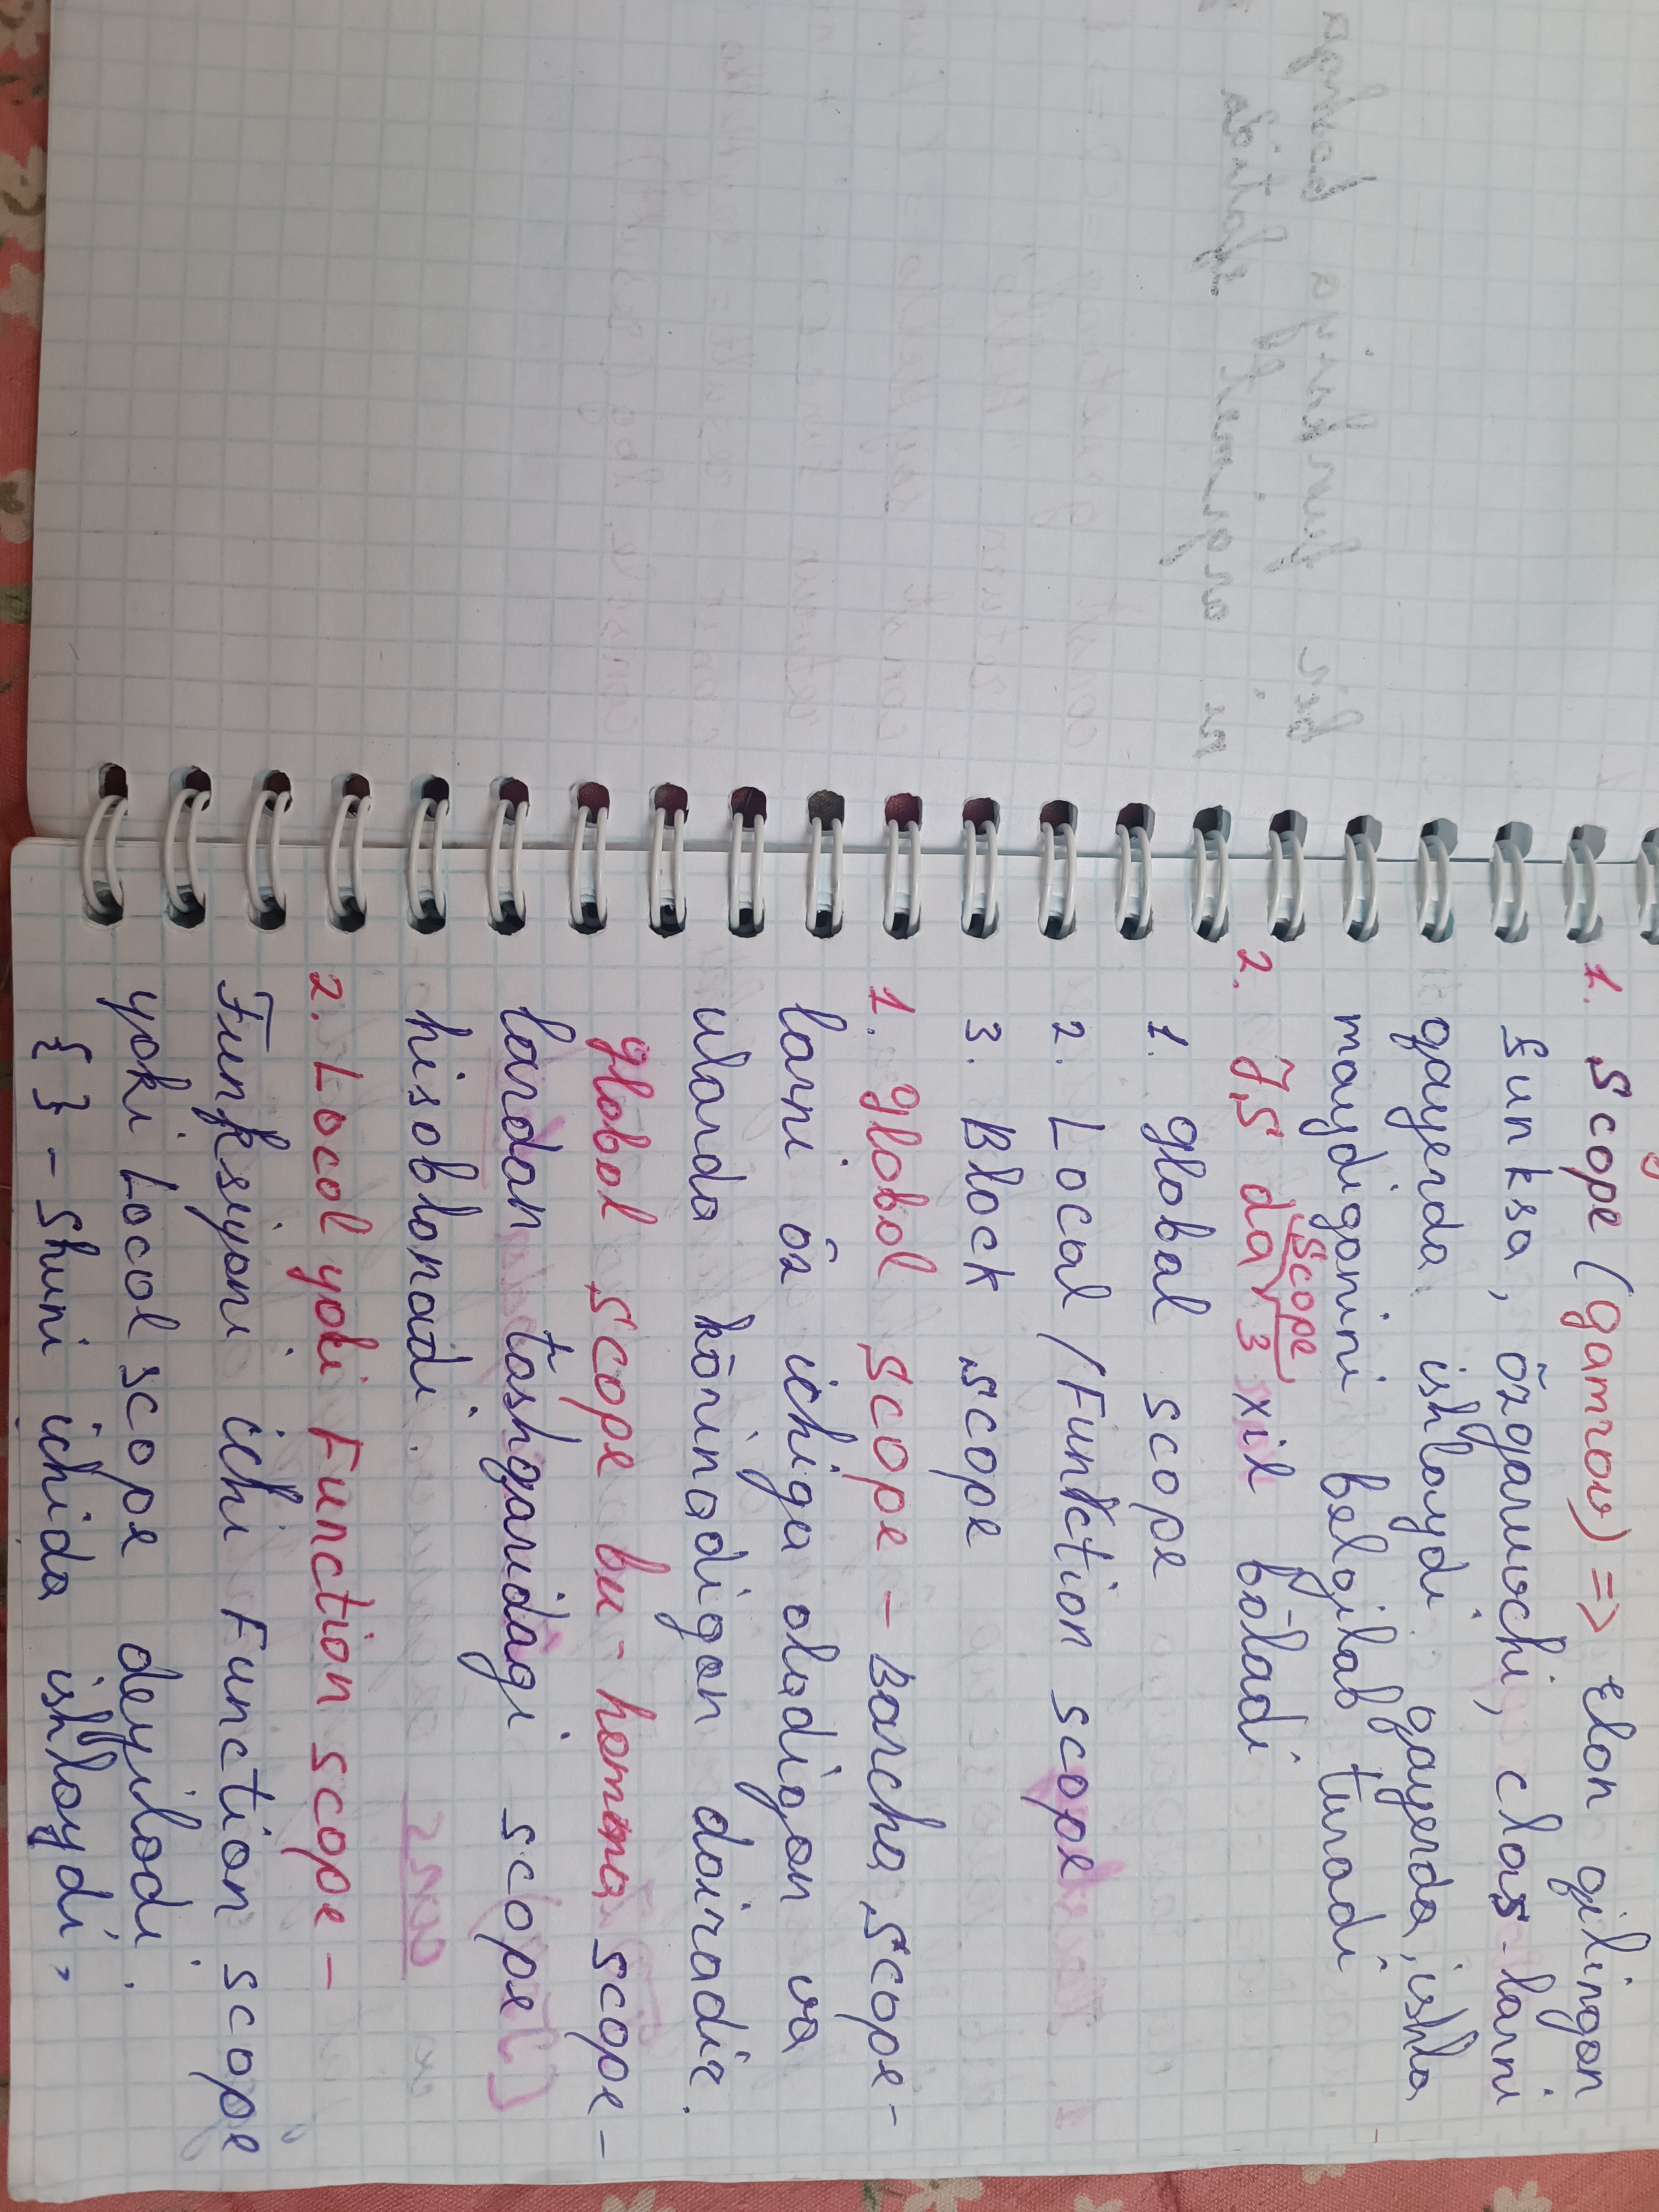 1. Scope (qamrov) => Elon qilingan
funksa, õzgaruvchi, class-larni
qayerda ishlaydi qayerda, ishla
maydiganini belgilab turadi
2. JS da scope 3 xil bõladi
1. global scope
2. Local / Function scope
3. Block scope
1. global scope - Barcha scope-
larni õz ichiga oladigan va
ularda kõrinadigan doiradir.
global scope bu - hamma scope-
lardan tashqaridagi scope
hisoblanadi.
2. Local yoki Function scope -
Funksiyani ichi Function scope
yoki Local scope deyiladi.
{ } - Shuni ichida ishlaydi,